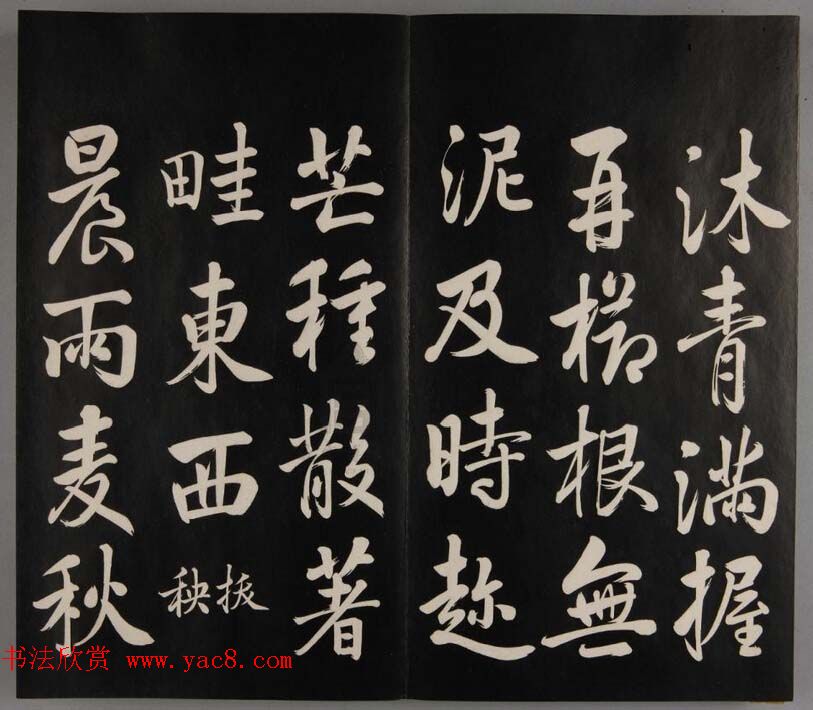 沐青滿握
再櫛根無
泥及時趂
芒種散著
畦東西
拔秧
晨雨麦秋
书法欣赏 www.yac8.com